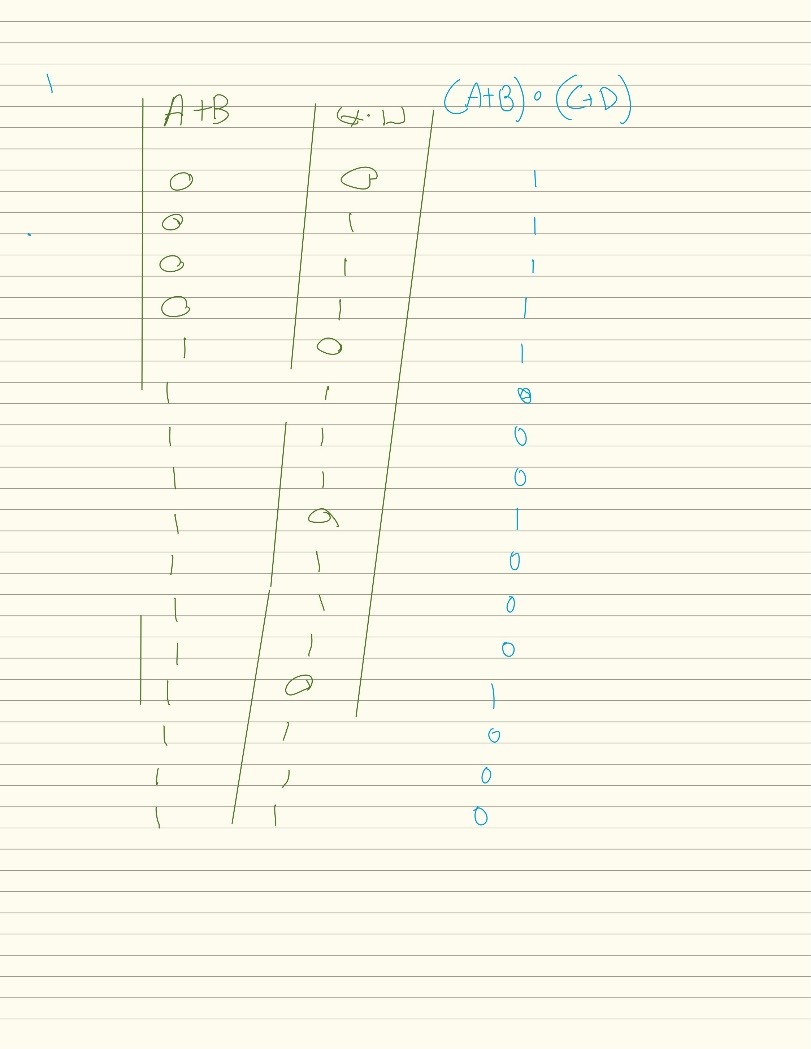 A+B (A+B)∘(C+D)
0 0 1
0 1 1
0 1 1
0 1 1
1 0 1
1 1 0
1 1 0
1 1 0
1 0 1
1 1 0
1 1 0
1 1 0
1 0 1
1 1 0
1 1 0
1 1 0